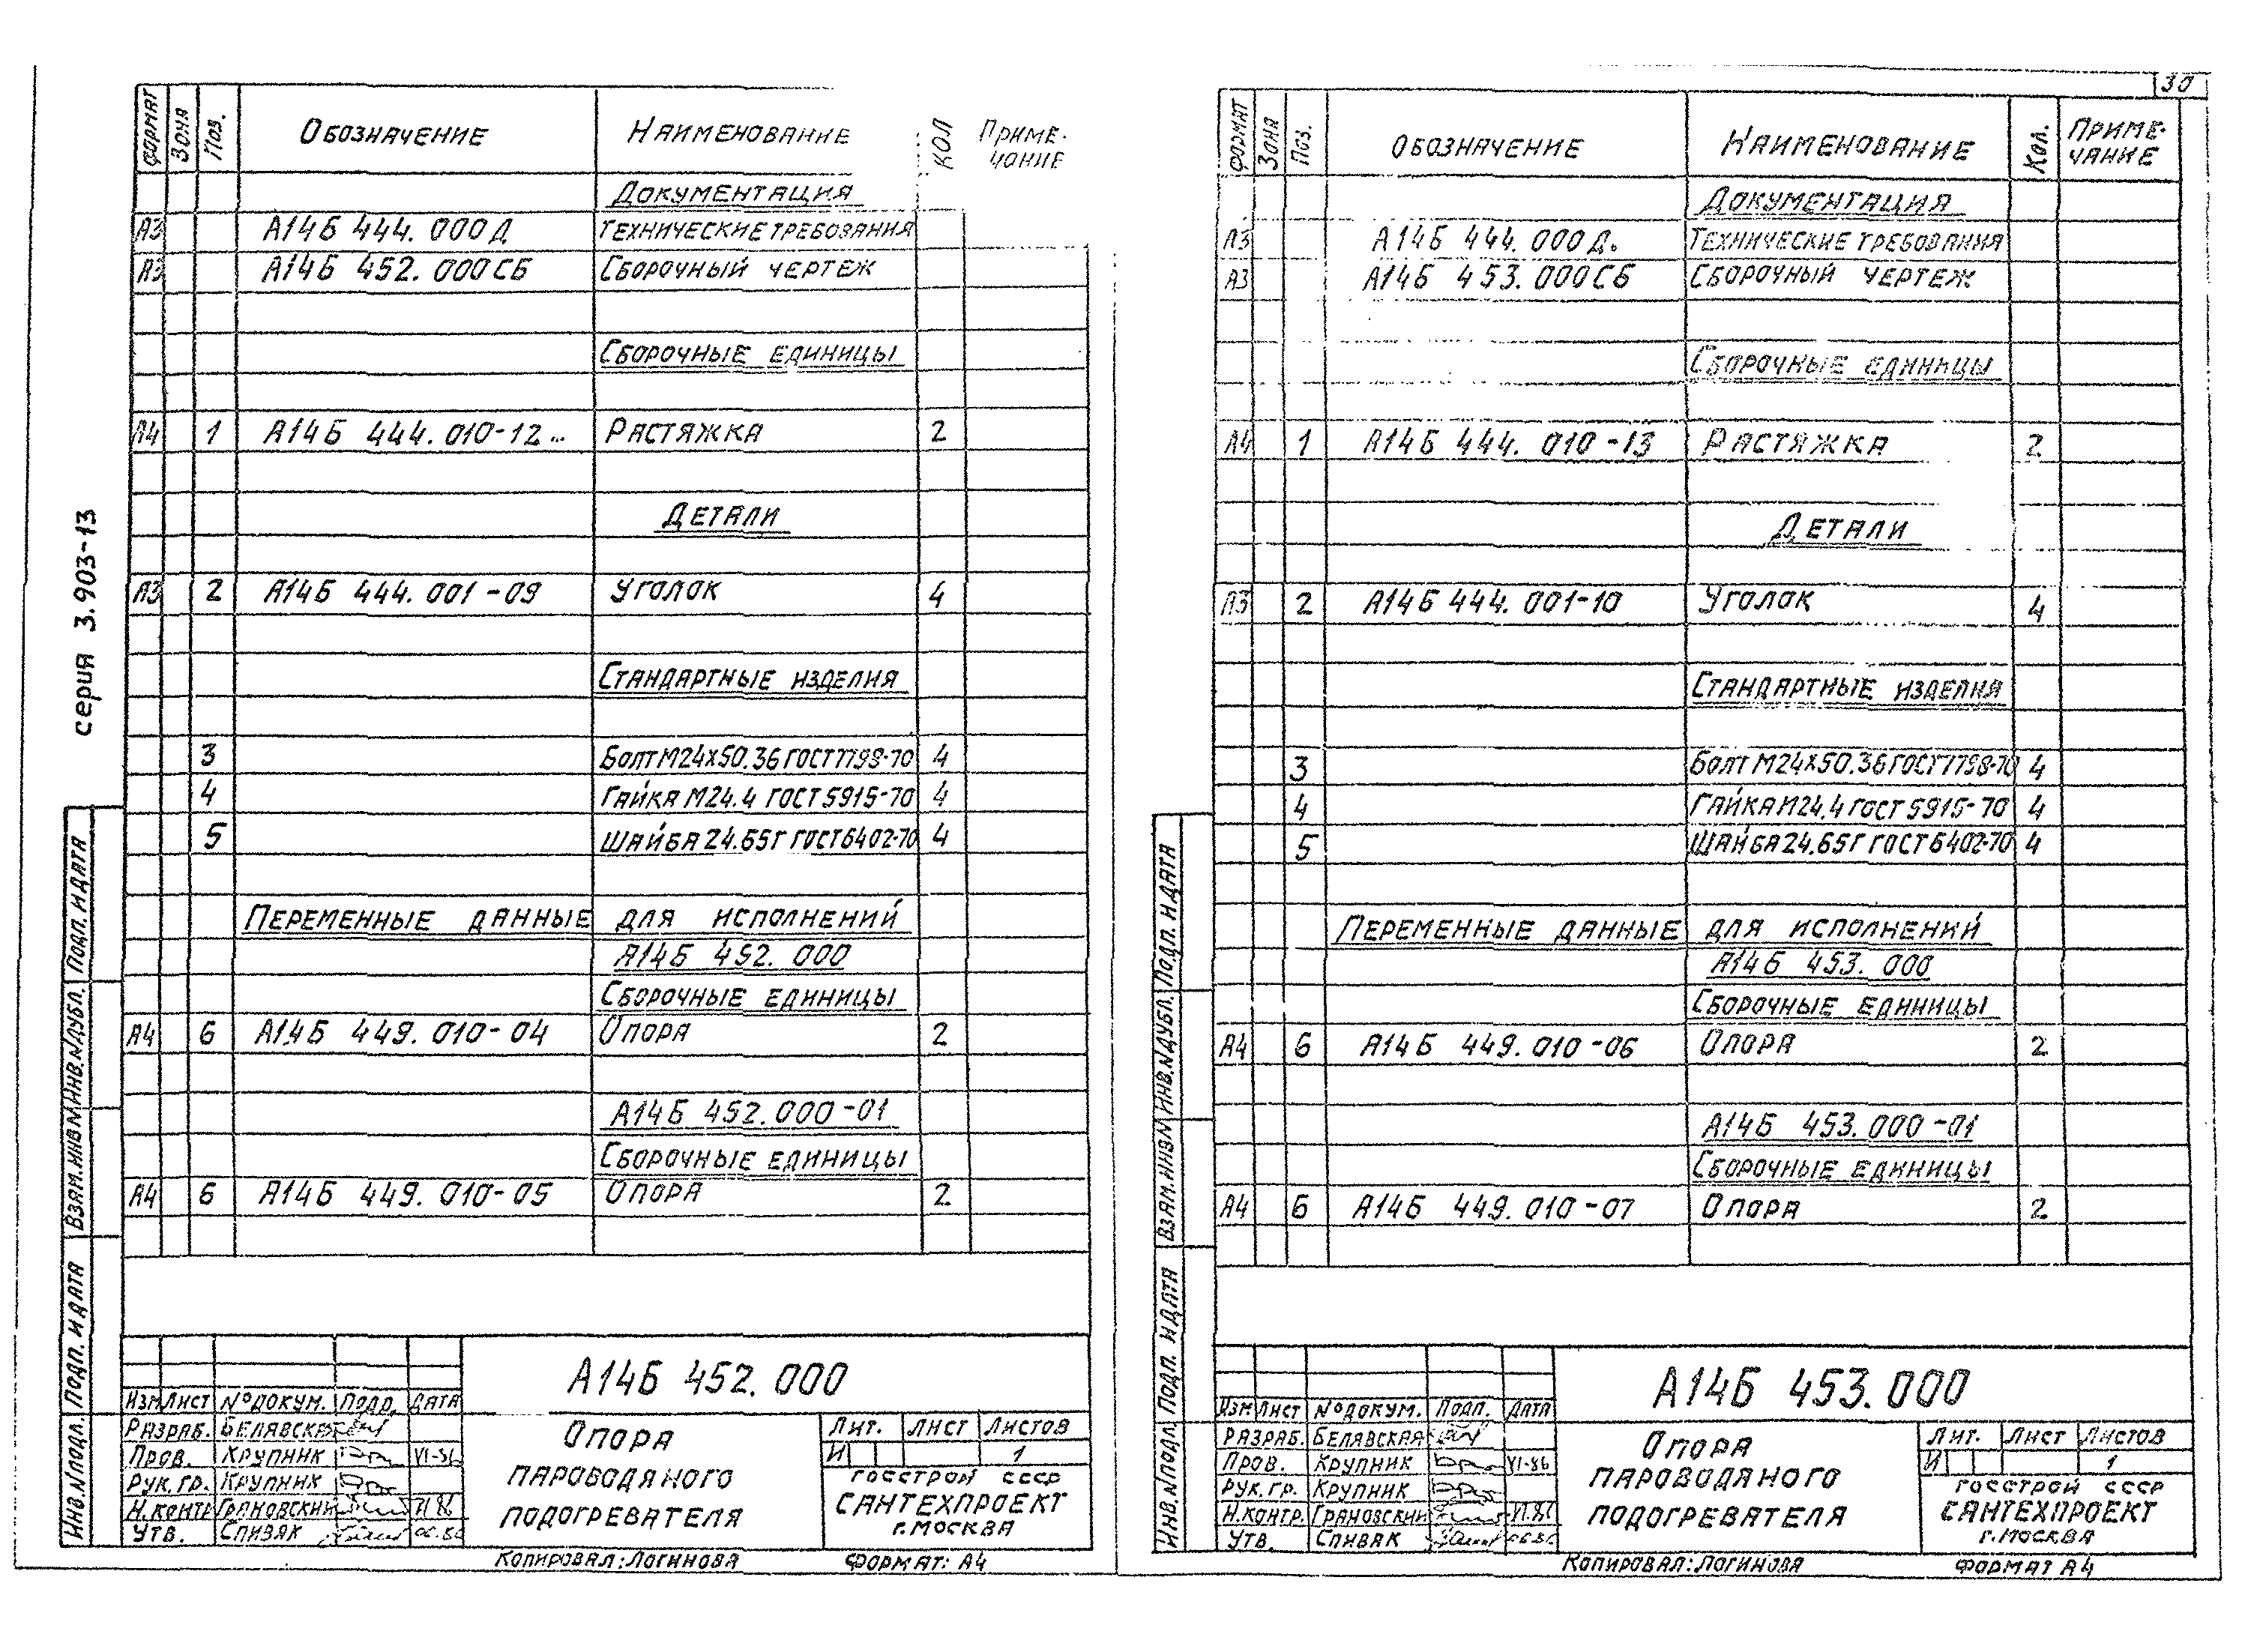 серия 3.903-13
Формат Зона Поз. Обозначение Наименование Кол Приме-
чание
Документация
А3 А14Б 444.000Д Технические требования
А3 А14Б 452.000СБ Сборочный чертеж
Сборочные единицы
А4 1 А14Б 444.010-12... Растяжка 2
Детали
А3 2 А14Б 444.001-09 Уголок 4
Стандартные изделия
3 Болт М24х50.36 ГОСТ 7798-70 4
4 Гайка М24.4 ГОСТ 5915-70 4
5 Шайба 24.65Г ГОСТ 6402-70 4
Переменные данные для исполнений
А14Б 452.000
Сборочные единицы
А4 6 А14Б 449.010-04 Опора 2
А14Б 452.000-01
Сборочные единицы
А4 6 А14Б 449.010-05 Опора 2
Инв.№подл. Подп. и дата Взам.инв№ Инв.№дубл. Подп. и дата
А14Б 452.000
Изм Лист №докум. Подп. Дата
Разраб. Белявская
Пров. Крупник VI-86
Рук.гр. Крупник
Н.контр Грановский
Утв. Спивак
Опора
пароводяного
подогревателя
Лит. Лист Листов
И 1
Госстрой СССР
Сантехпроект
г.Москва
Копировал: Логинова Формат: А4
30
Формат Зона Поз. Обозначение Наименование Кол. Приме-
чание
Документация
А3 А14Б 444.000Д. Технические требования
А3 А14Б 453.000СБ Сборочный чертеж
Сборочные единицы
А4 1 А14Б 444.010-13 Растяжка 2
Детали
А3 2 А14Б 444.001-10 Уголок 4
Стандартные изделия
3 Болт М24х50.36 ГОСТ 7798-70 4
4 Гайка М24.4 ГОСТ 5915-70 4
5 Шайба 24.65Г ГОСТ 6402-70 4
Переменные данные для исполнений
А14Б 453.000
Сборочные единицы
А4 6 А14Б 449.010-06 Опора 2
А14Б 453.000-01
Сборочные единицы
А4 6 А14Б 449.010-07 Опора 2
Инв.№подл. Подп. и дата Взам.инв№ Инв.№дубл. Подп. и дата
А14Б 453.000
Изм Лист №докум. Подп. Дата
Разраб. Белявская
Пров. Крупник VI-86
Рук.гр. Крупник
Н.контр. Грановский
Утв. Спивак
Опора
пароводяного
подогревателя
Лит. Лист Листов
И 1
Госстрой СССР
Сантехпроект
г.Москва
Копировал: Логинова Формат А4